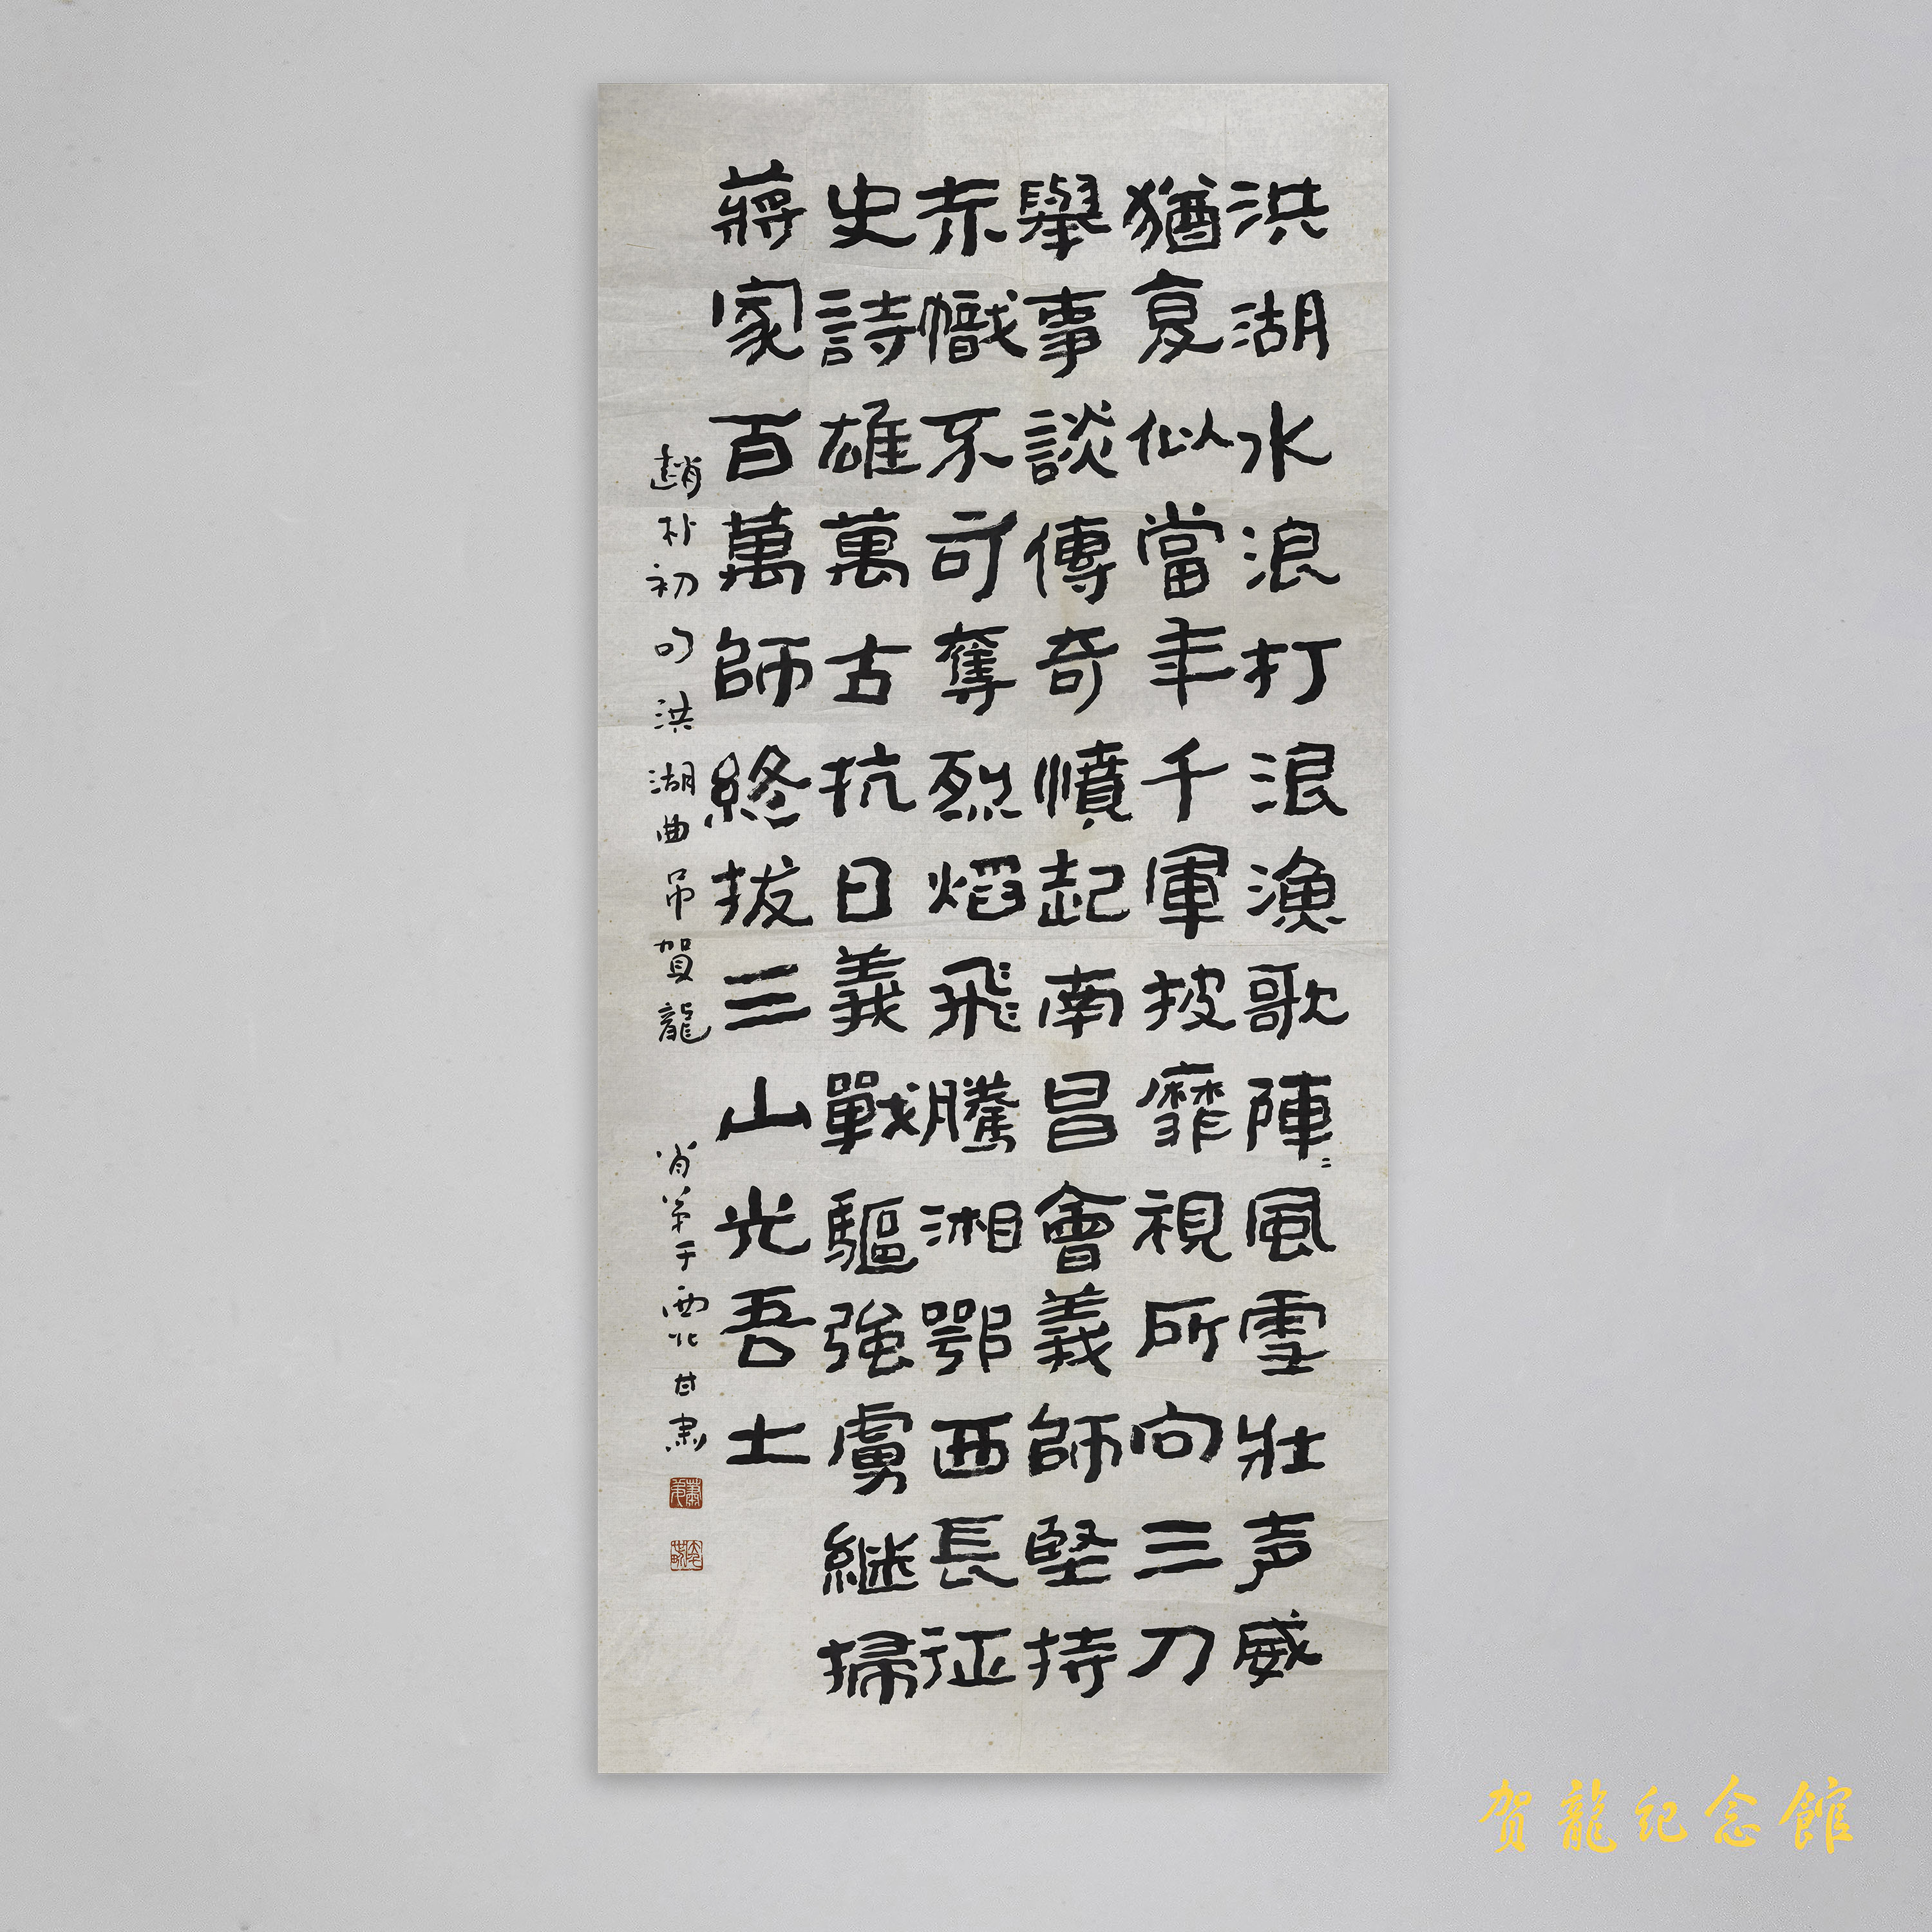 洪湖水浪打浪漁歌陣〻風雪壯声威
猶憂似當年千軍披靡視所向三刀
舉事談傳奇憤起南昌會義師堅持
赤幟不可奪烈焰飛騰湘鄂西長征
史詩雄萬古抗日義戰驅強虜継掃
蔣家百萬師終拔三山光吾土
趙朴初句洪湖曲吊賀龍 肖弟于西北甘肅
賀龍紀念館